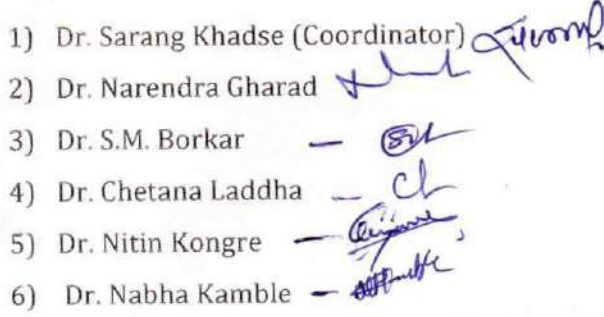 1) Dr. Sarang Khadse (Coordinator)
2) Dr. Narendra Gharad
3) Dr. S.M. Borkar –
4) Dr. Chetana Laddha –
5) Dr. Nitin Kongre –
6) Dr. Nabha Kamble –